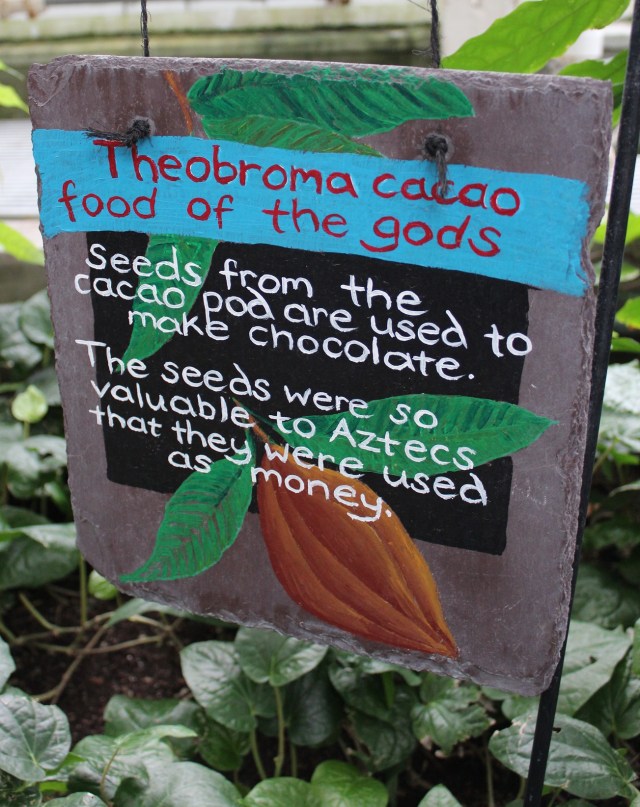 Theobroma cacao
food of the gods
Seeds from the
cacao pod are used to
make chocolate.
The seeds were so
valuable to Aztecs
that they were used
as money.